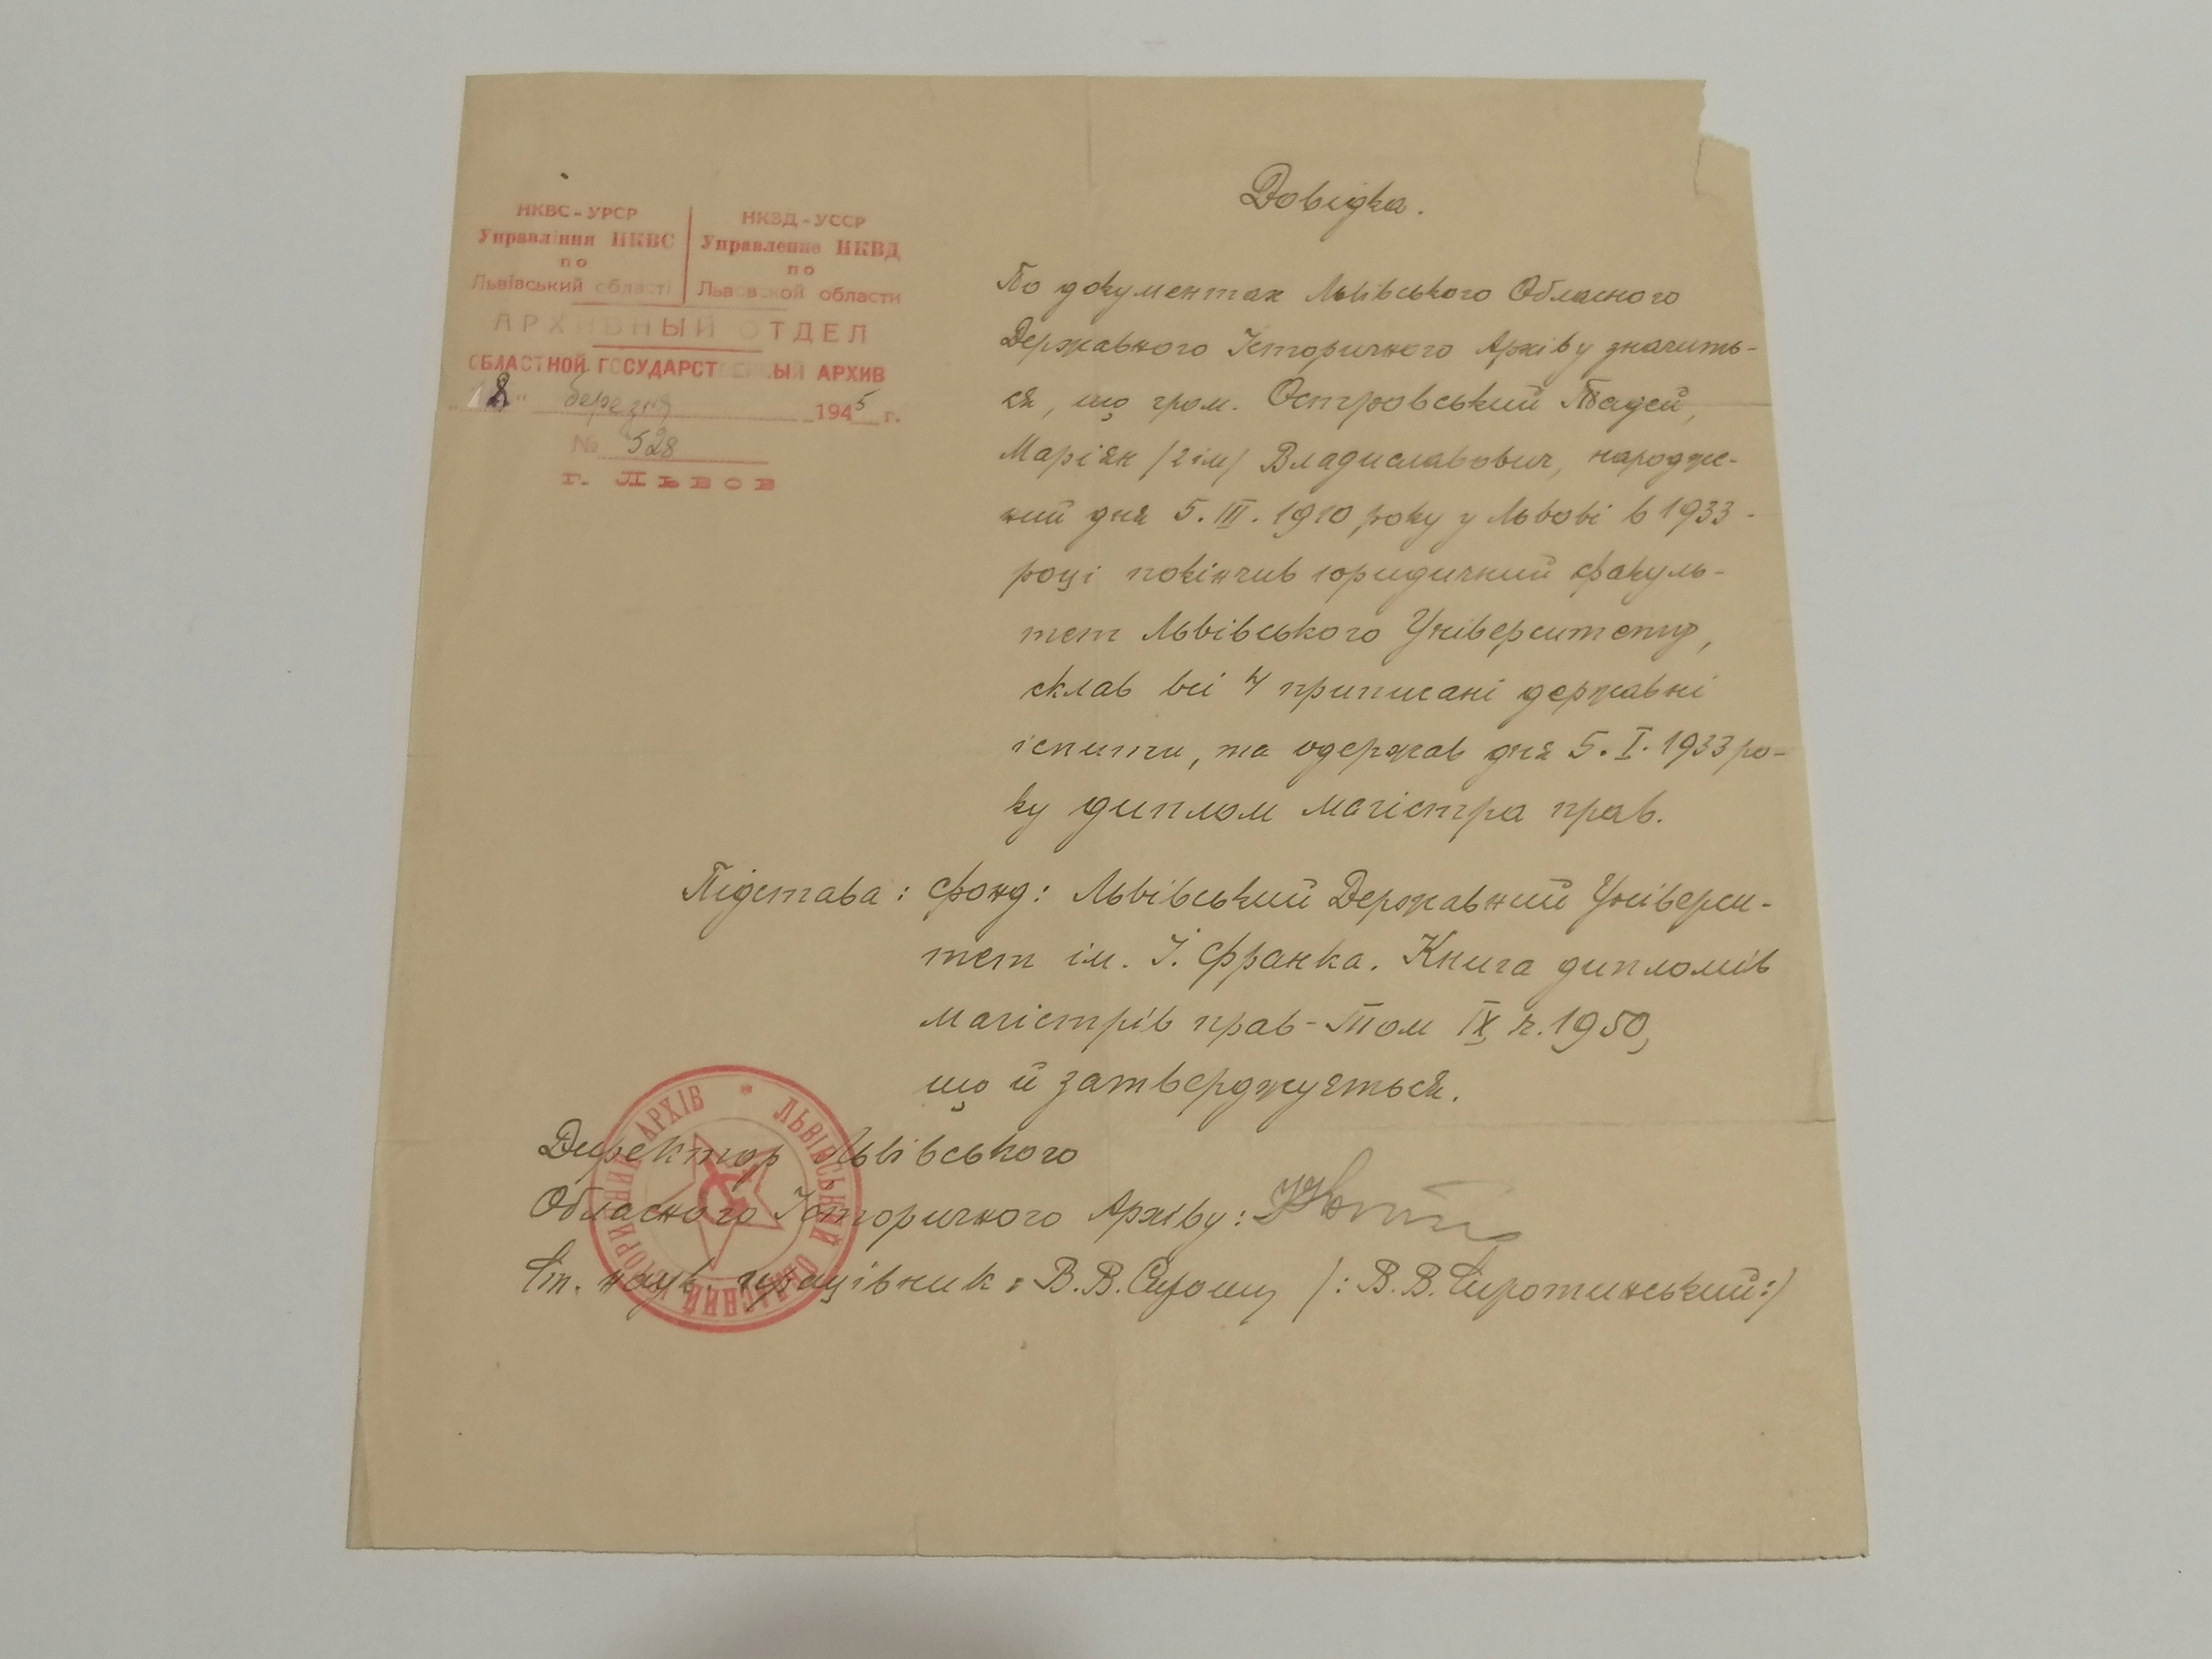 НКВС-УРСР
Управління НКВС
по
Львівський області
НКВД-УССР
Управление НКВД
по
Львовской области
АРХИВНЫЙ ОТДЕЛ
ОБЛАСТНОЙ ГОСУДАРСТВЕННЫЙ АРХИВ
"18" березня 1945 г.
№ 528
г. Львов
Довідка.
По документах Львівського Обласного
Державного Історичного Архіву значить-
ся, що гром. Островський Тадей,
Маріян /2 ім/ Владиславович, народже-
ний дня 5. III. 1910 року у Львові в 1933-
році покінчив юридичний факуль-
тет Львівського Університету,
склав всі 4 приписані державні
іспити, та одержав дня 5. I. 1933 ро-
ку диплом магістра прав.
Підстава: фонд: Львівський Державний Універси-
тет ім. І. Франка. Книга дипломів
магістрів прав - Том IX, ч. 1950,
що й затверджується.
Директор Львівського
Обласного Історичного Архіву:
Ст. наук. працівник: В.В. /: В.В. Сиротинський:/
ЛЬВІВСЬКИЙ ОБЛАСНИЙ ІСТОРИЧНИЙ АРХІВ *